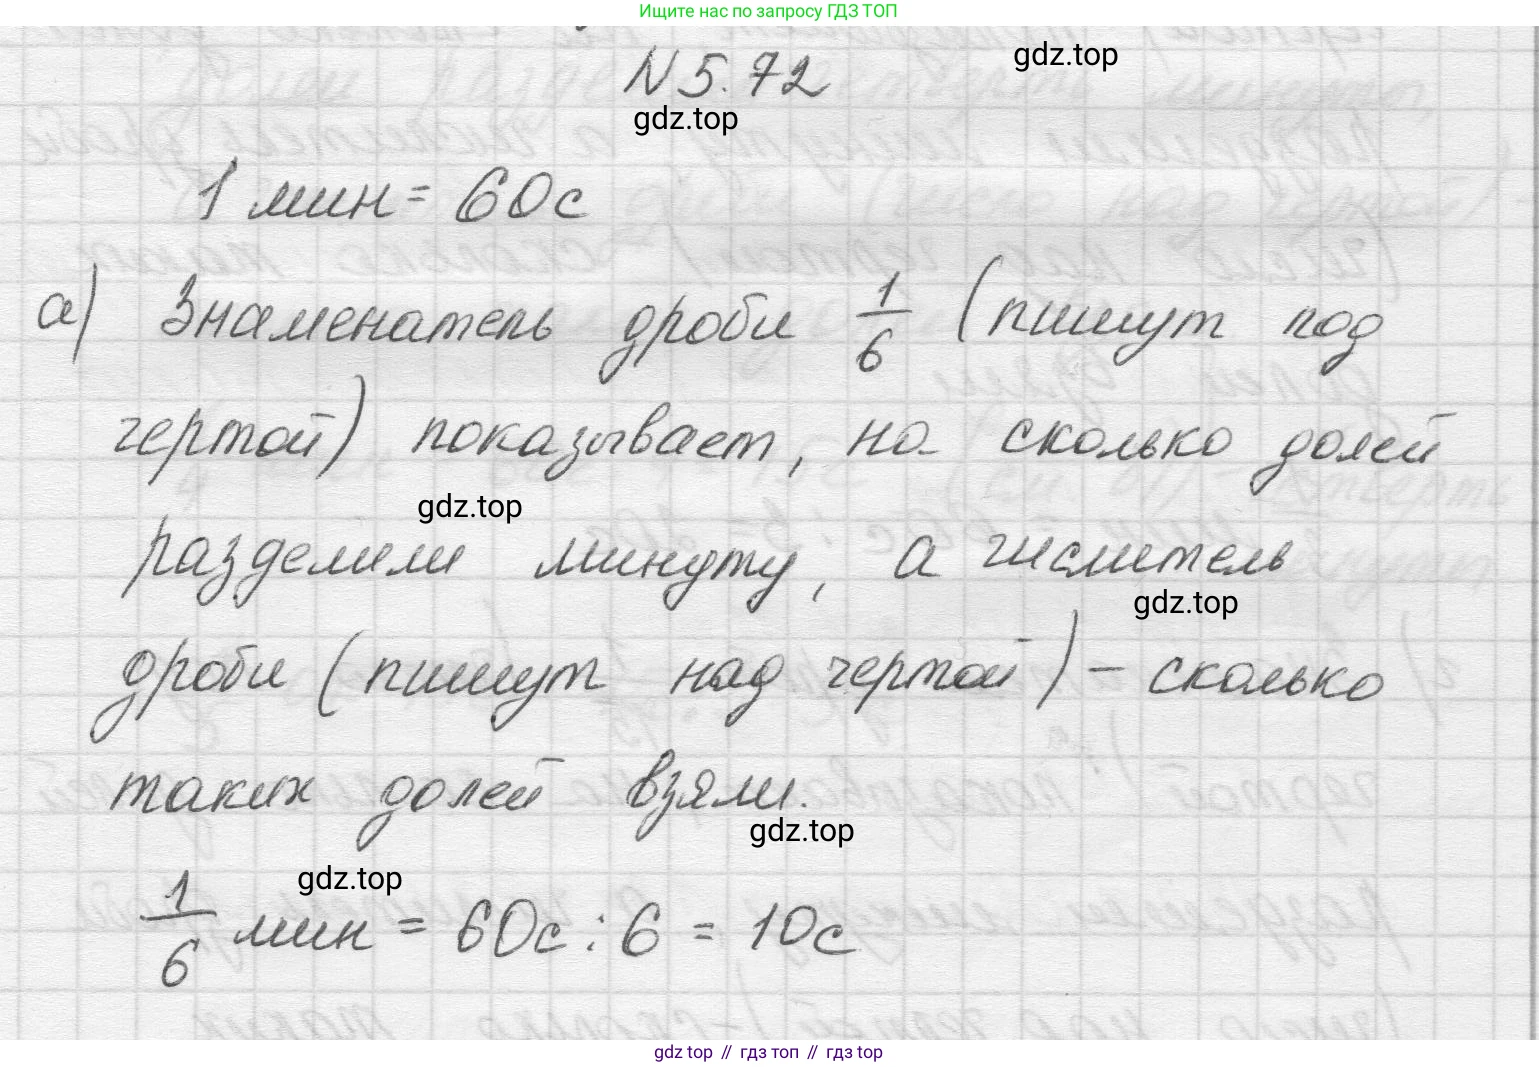 Ищите нас по запросу ГДЗ ТОП
N 5.72
gdz.top
gdz.top
1 мин = 60с
а) Знаменатель дроби 1/6 (пишут под
чертой) показывает, на сколько долей
gdz.top
разделили минуту, а числитель
gdz.top
дроби (пишут над чертой) – сколько
таких долей взяли.
gdz.top
gdz.top
1/6 мин = 60с : 6 = 10с
gdz top // гдз топ // гдз top